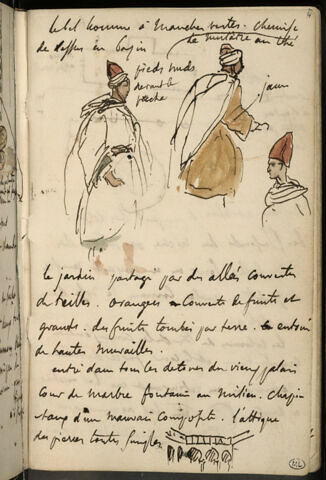 le bel homme à manches vertes. chemise
de dessus en basin
le mulâtre au thé
pieds nuds
devant le
jaune
le jardin partagé par des allées couvertes
de treilles. orangers couverts de fruits et
grands. des fruits tombés par terre. entouré
de hautes murailles.
entré dans tous les détours du vieux palais
Cour de marbre fontaine au milieu. chapi-
-teaux d'un mauvais composite. l'attique
des pierres toutes simples
ML